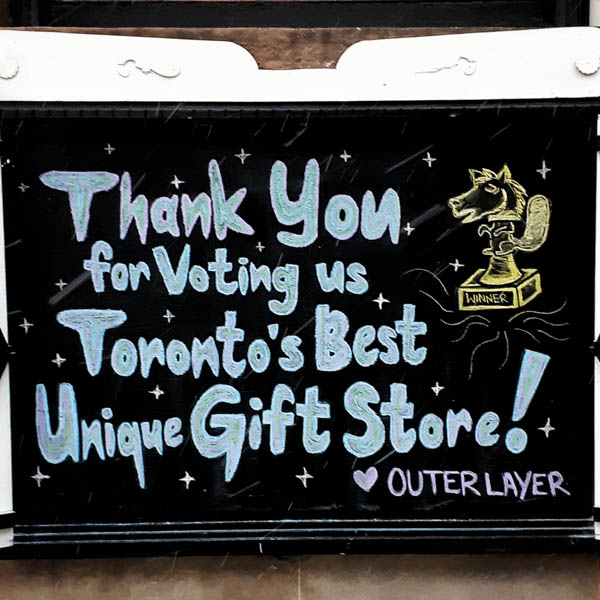 Thank You
for Voting us
Toronto's Best
Unique Gift Store!
♥ OUTER LAYER
WINNER